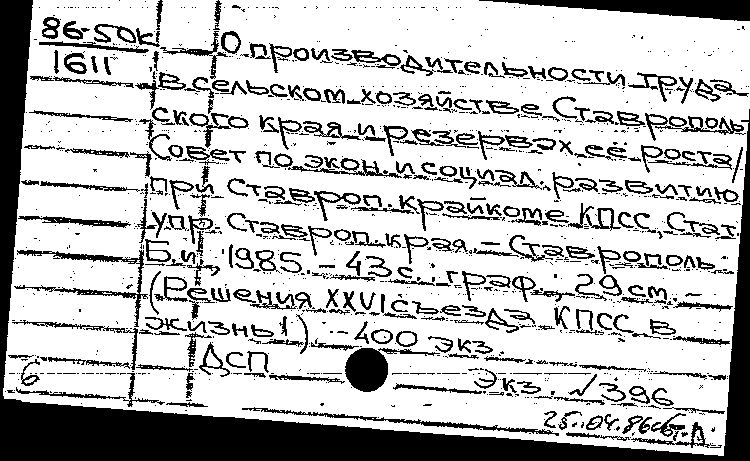 86-50к
1611
О производительности труда
в сельском хозяйстве Ставрополь
ского края и резервах её роста/
Совет по экон. и социал. развитию
при Ставроп. крайкоме КПСС, Стат.
упр. Ставроп. края. – Ставрополь:
Б.и., 1985. – 43 с.: граф.; 29 см. –
(Решения XXVI съезда КПСС в
жизнь!). – 400 экз.
ДСП
6
Экз. №396
25.04.86